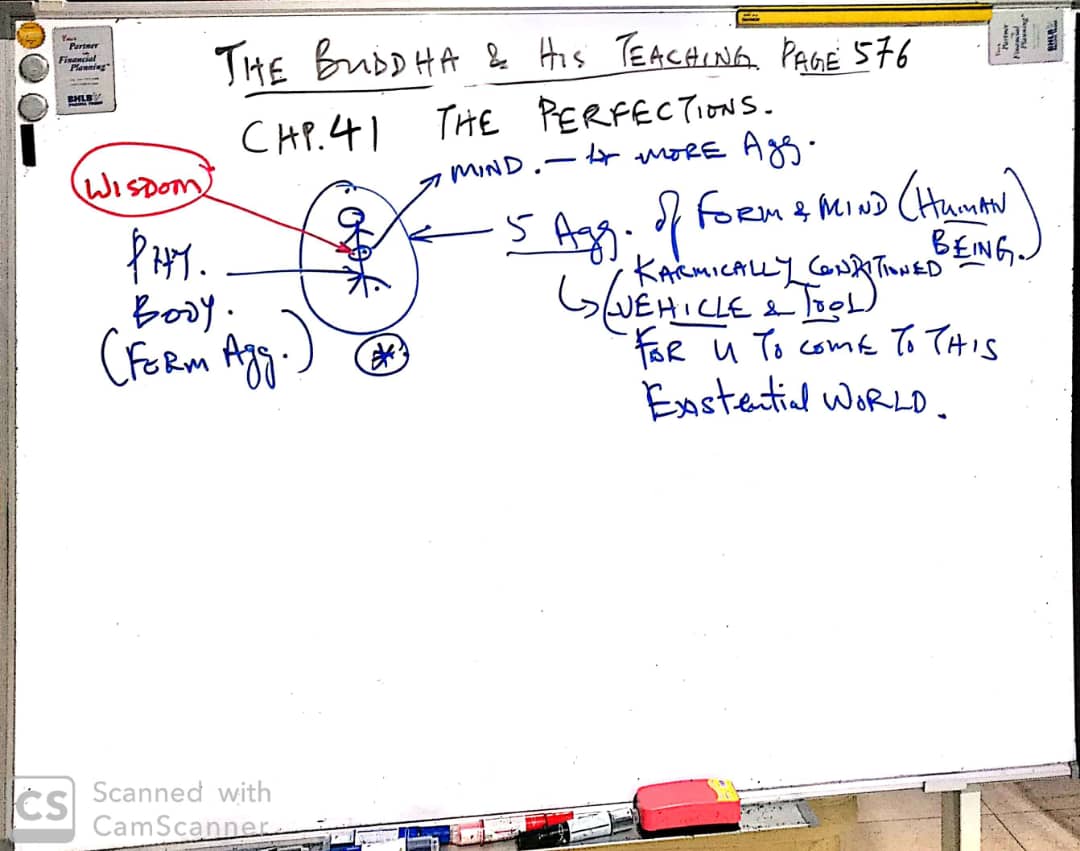 Your
Partner
in
Financial
Planning
BHLB
THE BUDDHA & His TEACHING PAGE 576
CHP.41 THE PERFECTIONS.
MIND. — 4 MORE Agg.
WISDOM
5 Agg. of FORM & MIND (HUMAN BEING.)
PHY.
BODY.
(FORM Agg.)
(KARMICALLY CONDITIONED
VEHICLE & TOOL)
FOR U TO COME TO THIS
Existential WORLD.
CS Scanned with
CamScanner